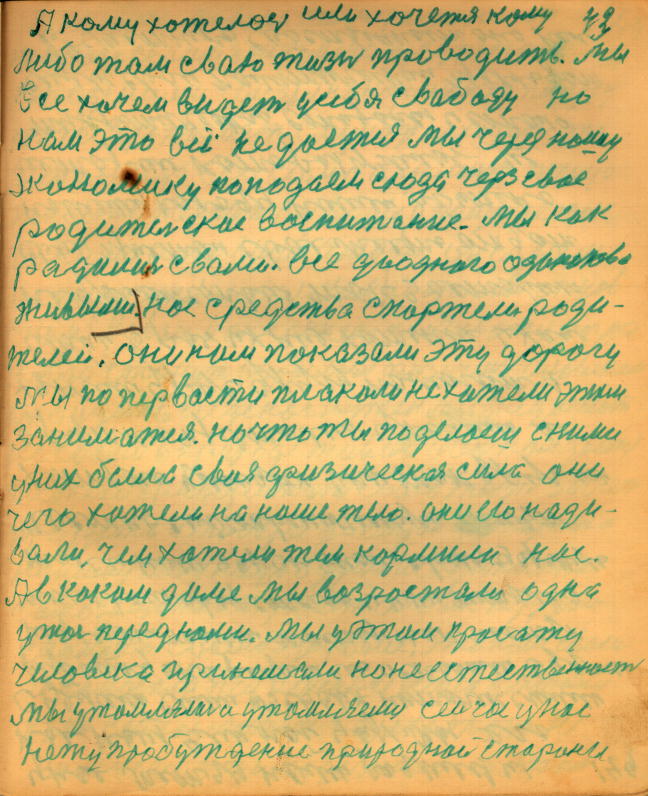 А кому хотелос или хочетя кому 42
либо там сваю жизн проводить. Мы
все хочем видет усебя свабоду но
нам это всё не даетея Мы через нашу
экономику поподаем сюда через свае
родительское воспитание. Мы как
радилися свами. все до одного одинаково
живыми. нас средства спортели роди-
телей. они нам показали эту дорогу
Мы по первости плакали не хатели этим
заниматея. но что ты поделаеш сними
уних была своя физическая сила они
чего хатели на наше тело. они его нади-
вали, чем хатели тем кормили нас.
А в каком доме мы возростали одна
ужас перед нами. Мы у этом
человека принимали но неестественност
мы утомляли и утомляем сейчас у нас
нету пробуждение природной стороны